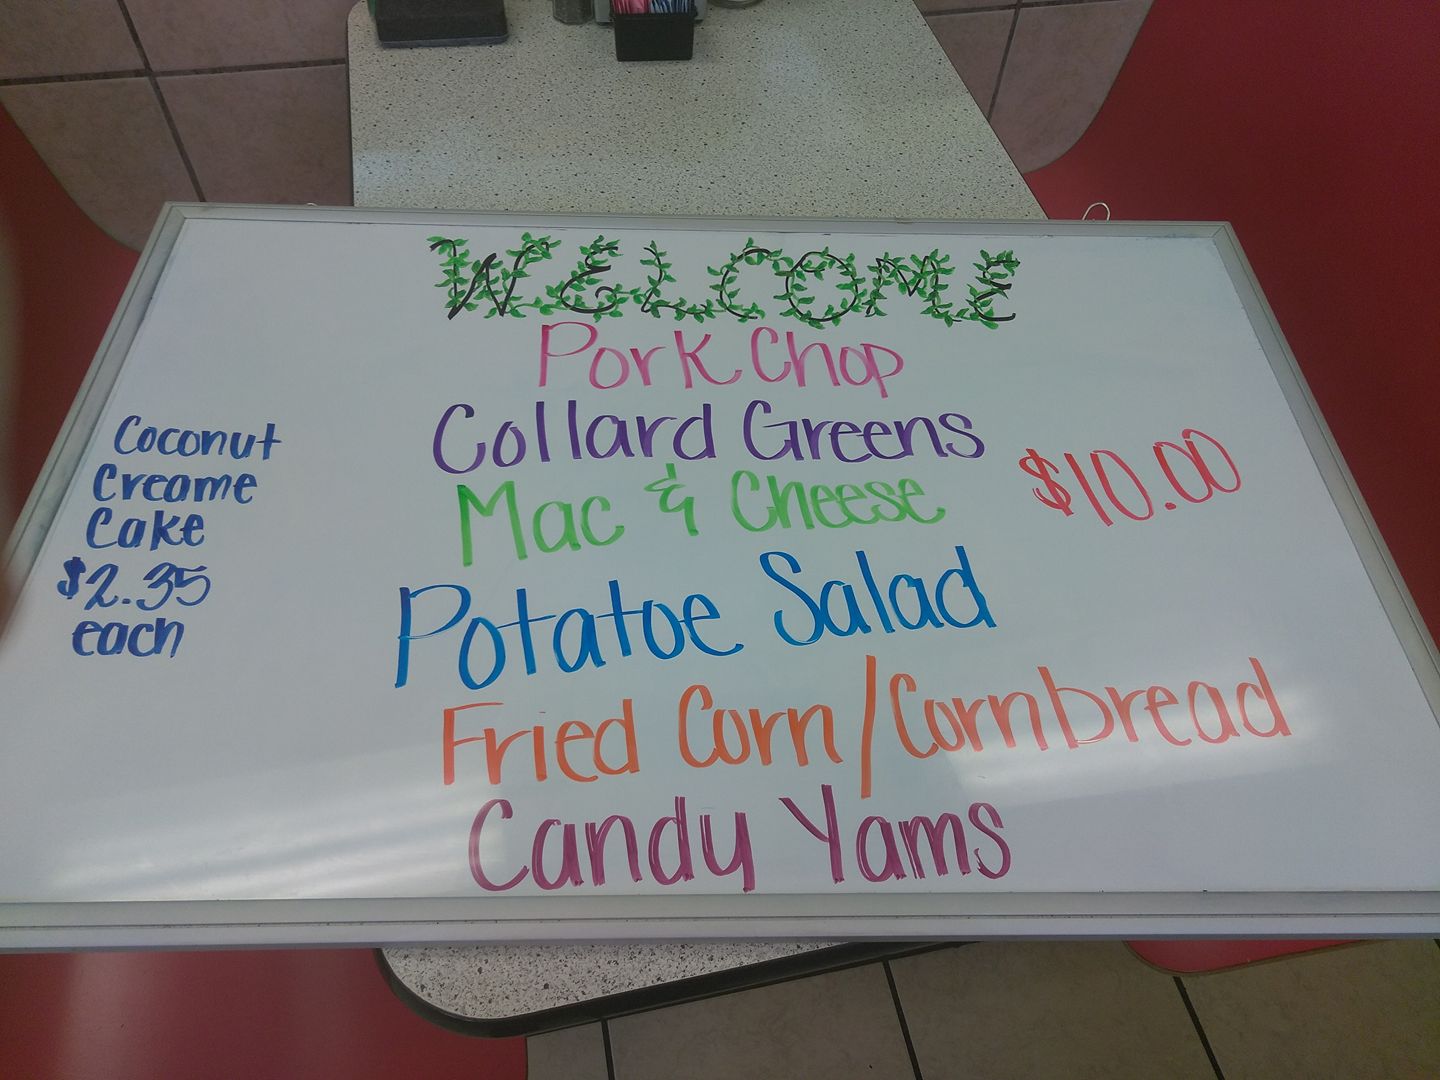 WELCOME
Pork Chop
Collard Greens
Mac & Cheese
$10.00
Potatoe Salad
Fried Corn/Cornbread
Candy Yams
Coconut
Creame
Cake
$2.35
each